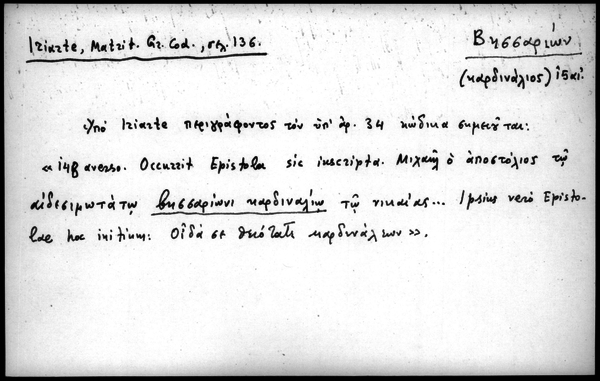 Iriarte, Matrit. Gr. Cod., σελ. 136.
Βησσαρίων
(καρδινάλιος) ι5 αἰ.
Ὑπὸ Iriarte περιγράφοντος τὸν ὑπ' ἀρ. 34 κώδικα σημειοῦται:
« 148 averso. Occurrit Epistola sic inscripta. Μιχαὴλ ὁ ἀποστόλιος τῷ
αἰδεσιμωτάτῳ βησσαρίωνι καρδιναλίῳ τῷ νικαίας... Ipsius verò Episto-
lae hoc initium: Οἶδά σε θειότατε καρδινάλεων ».